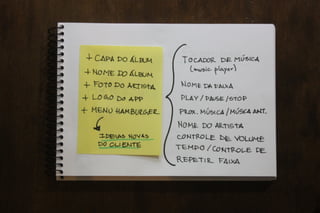 + CAPA DO ÁLBUM
+ NOME DO ÁLBUM
+ FOTO DO ARTISTA
+ LOGO DO APP
+ MENU HAMBURGER
IDEIAS NOVAS
DO CLIENTE
TOCADOR DE MÚSICA
(music player)
NOME DA FAIXA
PLAY / PAUSE / STOP
PROX. MÚSICA / MÚSICA ANT.
NOME DO ARTISTA
CONTROLE DE VOLUME
TEMPO / CONTROLE DE
REPETIR FAIXA